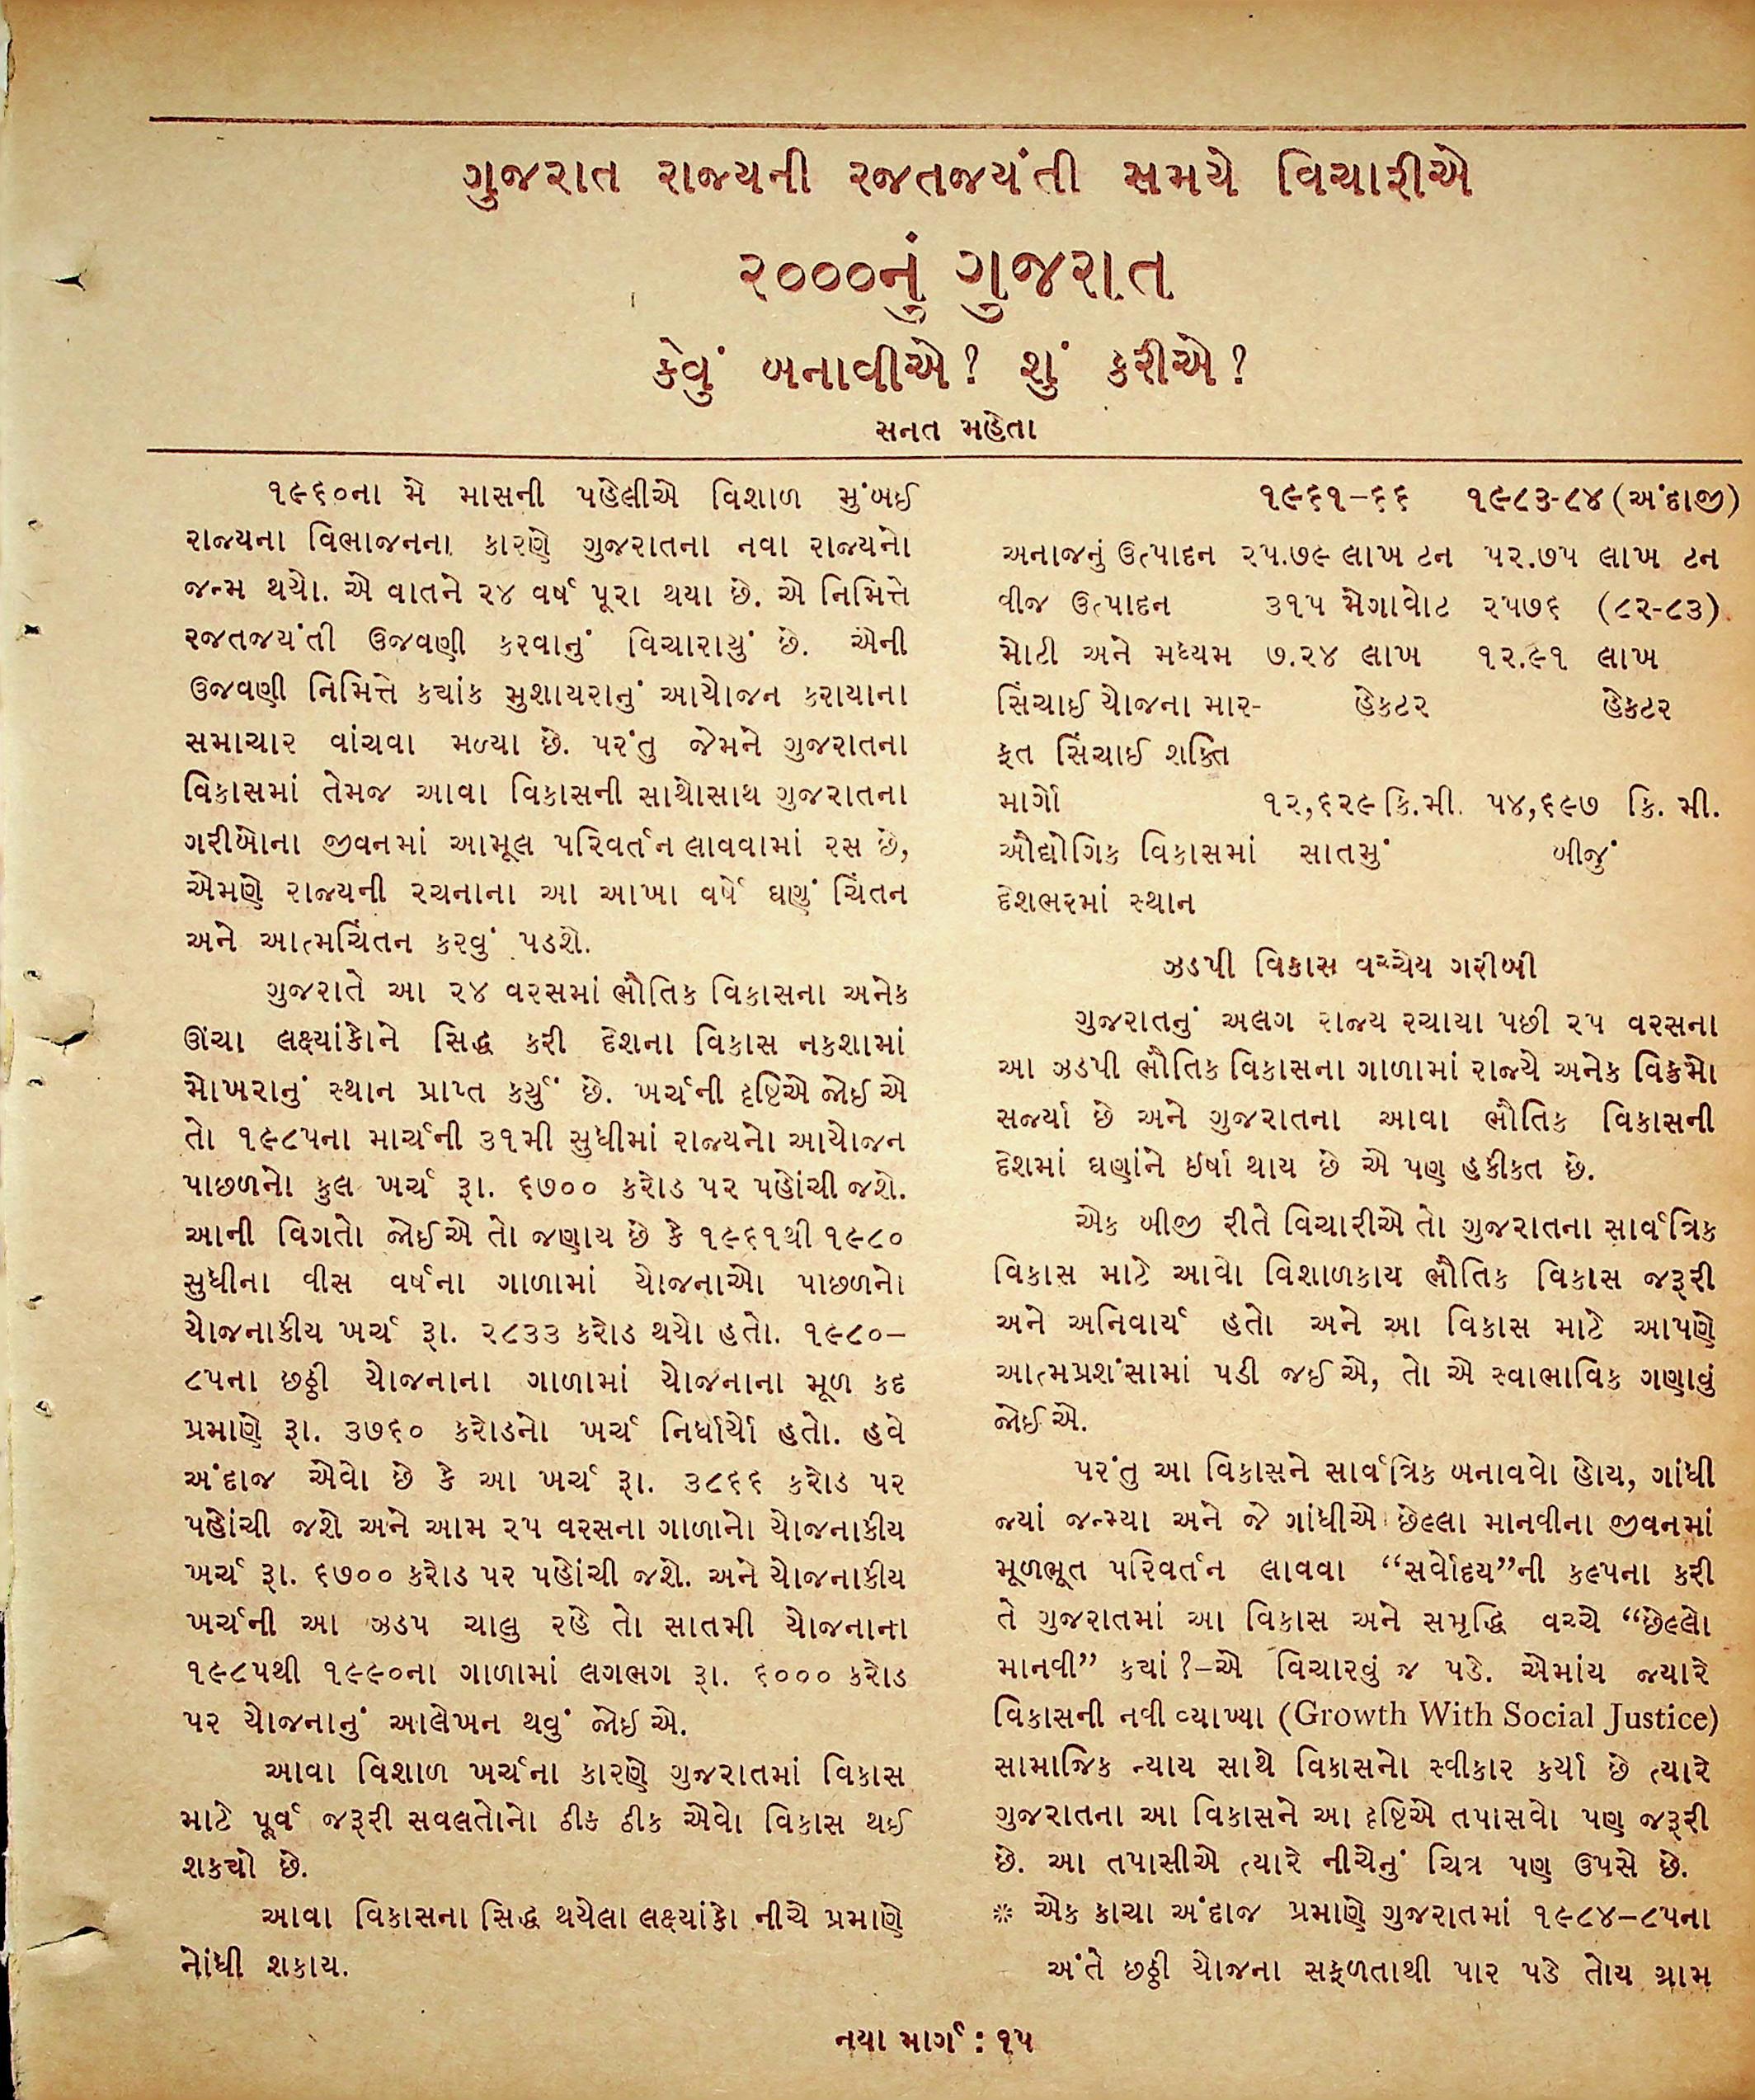 ગુજરાત રાજ્યની રજતજયંતી સમયે વિચારીએ
૨૦૦૦નું ગુજરાત
કેવું બનાવીએ? શું કરીએ?
સનત મહેતા
૧૯૬૦ના મે માસની પહેલીએ વિશાળ મુંબઈ
રાજ્યના વિભાજનના કારણે ગુજરાતના નવા રાજ્યનો
જન્મ થયો. એ વાતને ૨૪ વર્ષ પૂરા થયા છે. એ નિમિત્તે
રજતજયંતી ઉજવણી કરવાનું વિચારાયું છે. એની
ઉજવણી નિમિત્તે ક્યાંક મુશાયરાનું આયોજન કરાયાના
સમાચાર વાંચવા મળ્યા છે. પરંતુ જેમને ગુજરાતના
વિકાસમાં તેમજ આવા વિકાસની સાથોસાથ ગુજરાતના
ગરીબોના જીવનમાં આમૂલ પરિવર્તન લાવવામાં રસ છે,
એમણે રાજ્યની રચનાના આ આખા વર્ષે ઘણું ચિંતન
અને આત્મચિંતન કરવું પડશે.
ગુજરાતે આ ૨૪ વરસમાં ભૌતિક વિકાસના અનેક
ઊંચા લક્ષ્યાંકોને સિદ્ધ કરી દેશના વિકાસ નકશામાં
મોખરાનું સ્થાન પ્રાપ્ત કર્યું છે. ખર્ચની દૃષ્ટિએ જોઈએ
તો ૧૯૮૫ના માર્ચની ૩૧મી સુધીમાં રાજ્યનો આયોજન
પાછળનો કુલ ખર્ચ રૂા. ૬૭૦૦ કરોડ પર પહોંચી જશે.
આની વિગતો જોઈએ તો જણાય છે કે ૧૯૬૧થી ૧૯૮૦
સુધીના વીસ વર્ષના ગાળામાં યોજનાઓ પાછળનો
યોજનાકીય ખર્ચ રૂા. ૨૮૩૩ કરોડ થયો હતો. ૧૯૮૦–
૮૫ના છઠ્ઠી યોજનાના ગાળામાં યોજનાના મૂળ કદ
પ્રમાણે રૂા. ૩૭૬૦ કરોડનો ખર્ચ નિર્ધાર્યો હતો. હવે
અંદાજ એવો છે કે આ ખર્ચ રૂા. ૩૮૬૬ કરોડ પર
પહોંચી જશે અને આમ ૨૫ વરસના ગાળાનો યોજનાકીય
ખર્ચ રૂા. ૬૭૦૦ કરોડ પર પહોંચી જશે. અને યોજનાકીય
ખર્ચની આ ઝડપ ચાલુ રહે તો સાતમી યોજનાના
૧૯૮૫થી ૧૯૯૦ના ગાળામાં લગભગ રૂા. ૬૦૦૦ કરોડ
પર યોજનાનું આલેખન થવું જોઈએ.
આવા વિશાળ ખર્ચના કારણે ગુજરાતમાં વિકાસ
માટે પૂર્વ જરૂરી સવલતોનો ઠીક ઠીક એવો વિકાસ થઈ
શક્યો છે.
આવા વિકાસના સિદ્ધ થયેલા લક્ષ્યાંકો નીચે પ્રમાણે
નોંધી શકાય.
૧૯૬૧–૬૬ ૧૯૮૩-૮૪ (અંદાજી)
અનાજનું ઉત્પાદન ૨૫.૭૯ લાખ ટન ૫૨.૭૫ લાખ ટન
વીજ ઉત્પાદન ૩૧૫ મેગાવોટ ૨૫૭૬ (૮૨-૮૩)
મોટી અને મધ્યમ ૭.૨૪ લાખ ૧૨.૯૧ લાખ
સિંચાઈ યોજના માર- હેકટર હેકટર
ફત સિંચાઈ શક્તિ
માર્ગો ૧૨,૬૨૯ કિ.મી. ૫૪,૬૯૭ કિ. મી.
ઔદ્યોગિક વિકાસમાં સાતમું બીજું
દેશભરમાં સ્થાન
ઝડપી વિકાસ વચ્ચેય ગરીબી
ગુજરાતનું અલગ રાજ્ય રચાયા પછી ૨૫ વરસના
આ ઝડપી ભૌતિક વિકાસના ગાળામાં રાજ્યે અનેક વિક્રમો
સર્જ્યા છે અને ગુજરાતના આવા ભૌતિક વિકાસની
દેશમાં ઘણાંને ઈર્ષા થાય છે એ પણ હકીકત છે.
એક બીજી રીતે વિચારીએ તો ગુજરાતના સાર્વત્રિક
વિકાસ માટે આવો વિશાળકાય ભૌતિક વિકાસ જરૂરી
અને અનિવાર્ય હતો અને આ વિકાસ માટે આપણે
આત્મપ્રશંસામાં પડી જઈએ, તો એ સ્વાભાવિક ગણાવું
જોઈએ.
પરંતુ આ વિકાસને સાર્વત્રિક બનાવવો હોય, ગાંધી
જ્યાં જન્મ્યા અને જે ગાંધીએ છેલ્લા માનવીના જીવનમાં
મૂળભૂત પરિવર્તન લાવવા “સર્વોદય”ની કલ્પના કરી
તે ગુજરાતમાં આ વિકાસ અને સમૃદ્ધિ વચ્ચે “છેલ્લો
માનવી” ક્યાં?–એ વિચારવું જ પડે. એમાંય જ્યારે
વિકાસની નવી વ્યાખ્યા (Growth With Social Justice)
સામાજિક ન્યાય સાથે વિકાસનો સ્વીકાર કર્યા છે ત્યારે
ગુજરાતના આ વિકાસને આ દૃષ્ટિએ તપાસવો પણ જરૂરી
છે. આ તપાસીએ ત્યારે નીચેનું ચિત્ર પણ ઉપસે છે.
※ એક કાચા અંદાજ પ્રમાણે ગુજરાતમાં ૧૯૮૪–૮૫ના
અંતે છઠ્ઠી યોજના સફળતાથી પાર પડે તોય ગ્રામ
નયા માર્ગ : ૧૫